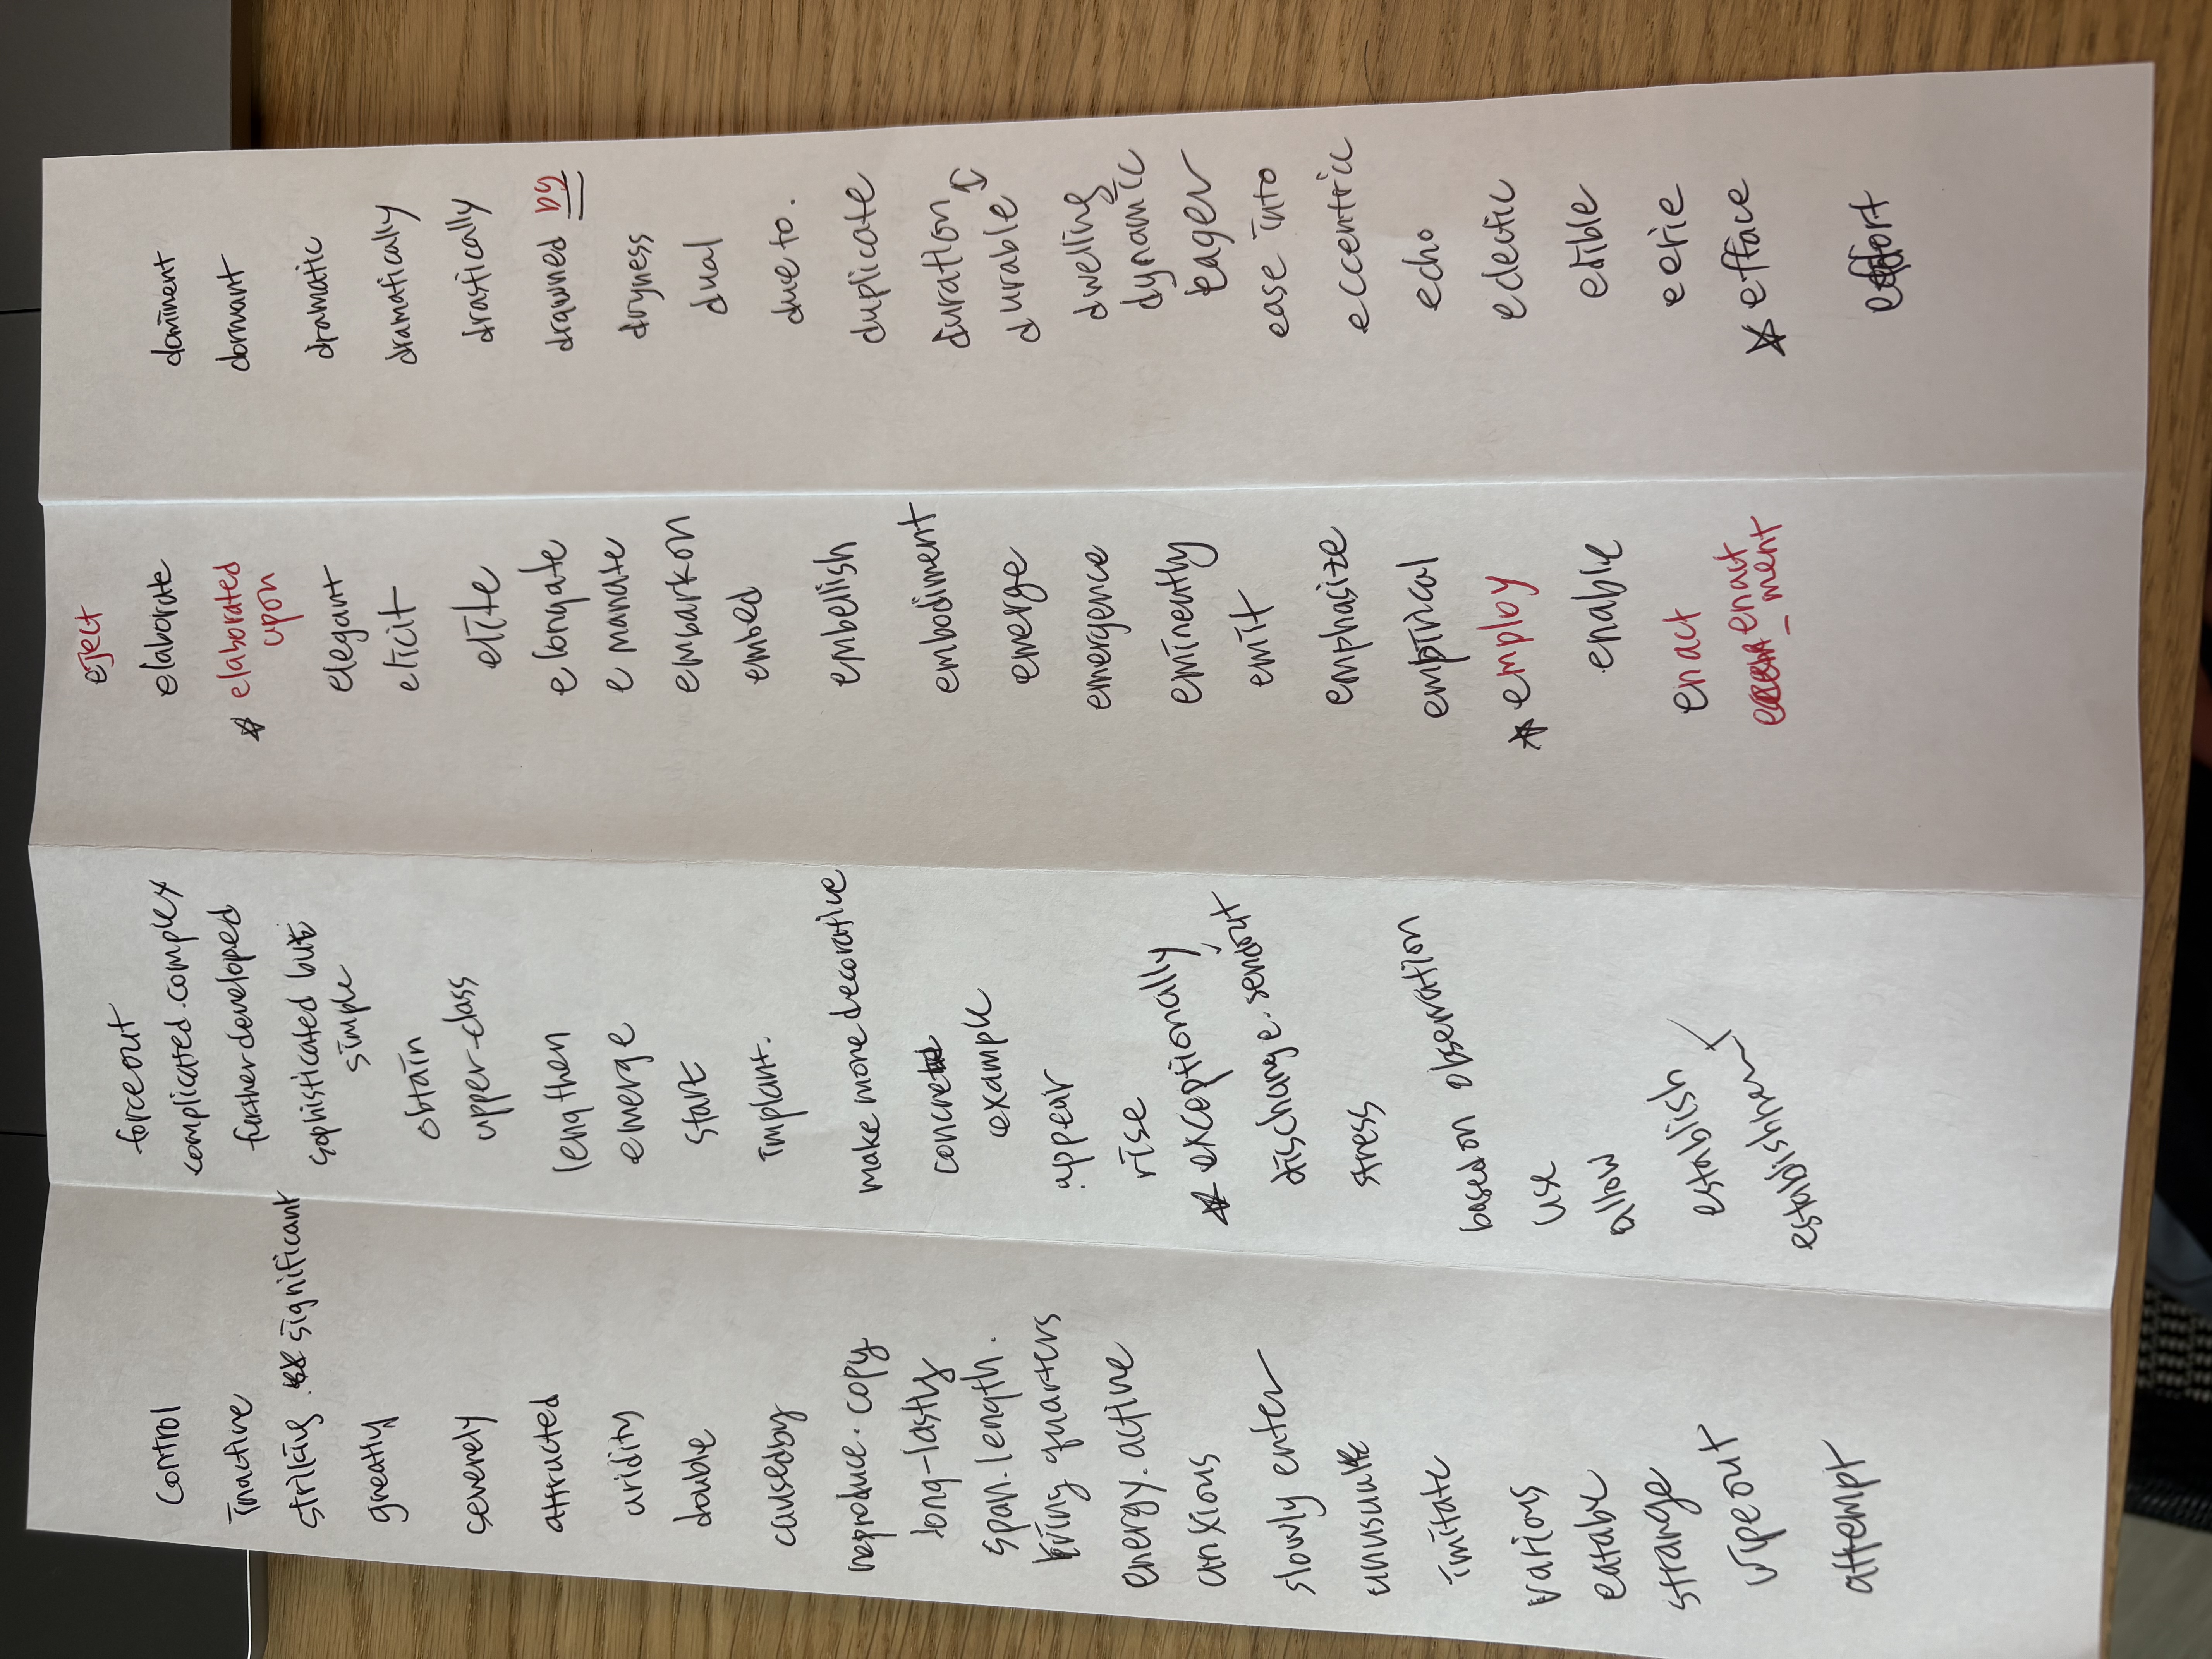 control
inactive
striking. significant
greatly
severely
attracted
aridity
double
causedby
reproduce. copy
long-lastly
span. length.
living quarters
energy. active
anxious
slowly enter
imitate
various
strange
wipeout
attempt
forceout
complicated. complex
further developed
sophisticated but
simple
obtain
upper-class
lengthen
emerge
start
implant.
make more decorative
example
appear
rise
* exceptionally
discharge. sendout
stress
based on observation
use
allow
establish
eject
elaborate
* elaborated
upon
elegant
elicit
elite
elongate
emanate
embarkon
embed
embelish
embodiment
emerge
emergence
eminently
emit
emphasize
empirical
* employ
enable
enact
enact
_ment
dominent
dormant
dramatic
dramatically
drastically
drawned by
dryness
dual
due to.
duplicate
duration
durable
dwelling
dynamic
eager
ease into
eccentric
echo
eclectic
edible
eerie
* efface
effort